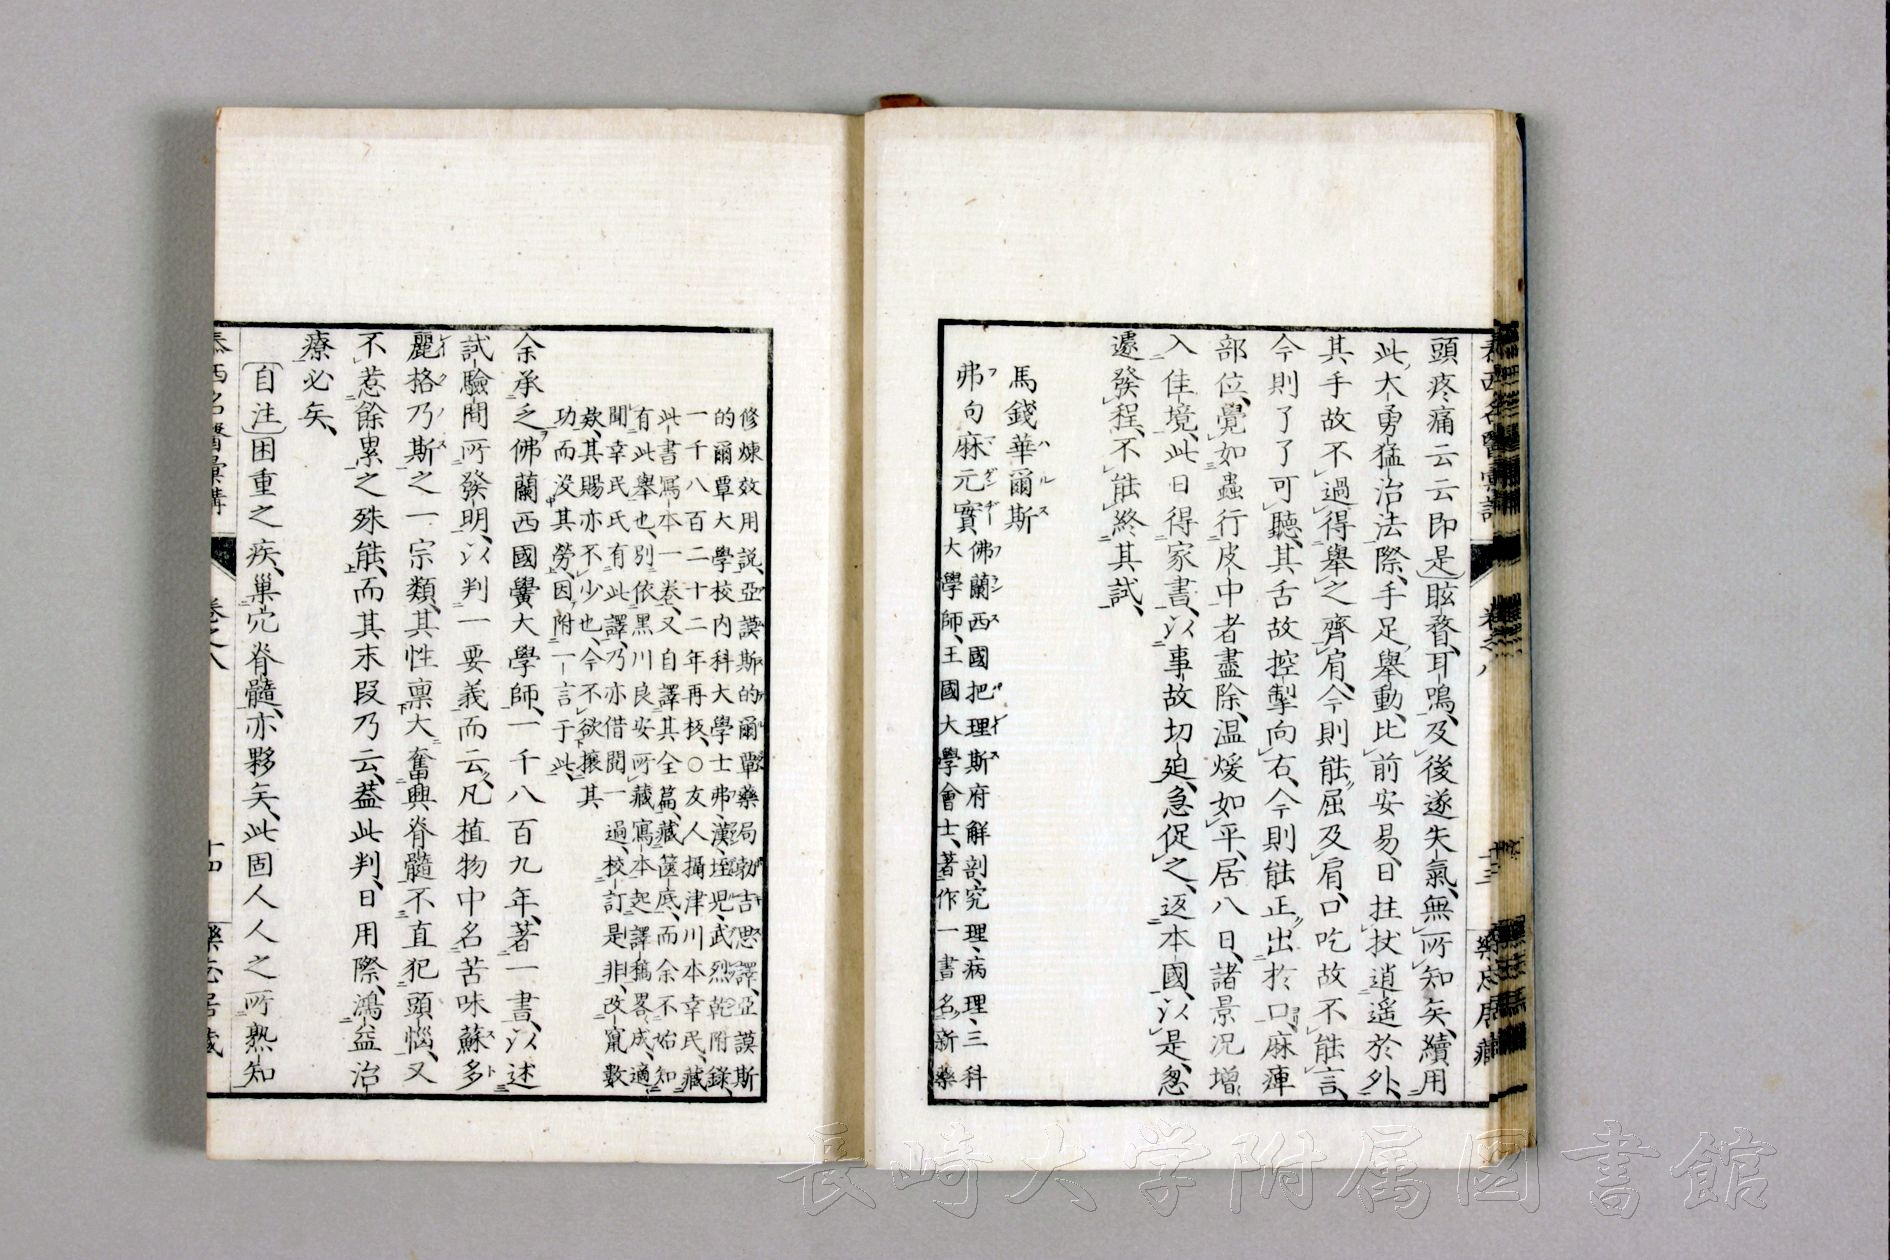 頭疼痛云云即是眩瞀、耳鳴、及後遂失氣、無所知矣、續用
此大勇猛治法際、手足擧動、比前安易、日拄杖逍遥於外、
其手故不過得擧之齊肩、今則能屈及肩、口吃故不能言、
今則了了可聽、其舌故控掣向右、今則能正出於口、麻痺
部位、覺如蟲行皮中者盡除、温煖如平、居八日、諸景况增
入佳境、此日得家書、以事故切迫、急促之、返本國、以是、怱
遽發程、不能終其試、
馬錢華爾斯
弗句麻元實 佛蘭西國把理斯府解剖、究理、病理、三科
大學師、王國大學會士、著作一書名新藥
泰西名醫彙講 卷之八 十三 樂志居藏
修煉效用説、亞謨斯的爾覃藥局勃吉思譯、亞謨斯
的爾覃大學校内科大學士弗、漢、垤児、武烈乾附錄、
一千八百二十二年再校、○友人攝津川本幸民、藏
此書寫本一卷、又自譯其全篇、藏篋底、而余不始知
有此擧也、別依黑川良安所藏寫本起譯稿畧成、適
聞幸民氏有此譯、乃亦借閲一過、校訂是非、改竄數
欵、其賜亦不少也、今不欲攘其
功而没其勞、因附一言于此、
余承乏佛蘭西國黌大學師、一千八百九年、著一書、以述
試驗間所發明、以判一要義而云、凡植物中名苦味蘇多
麗格乃斯之一宗類、其性禀大奮興脊髓、不直犯頭惱、又
不惹餘累之殊能、而其末段乃云、葢此判、日用際、鴻益治
療必矣、
自注 困重之疾、巢穴脊髓、亦夥矣、此固人人之所熟知
泰西名醫彙講 卷之八 十四 樂志居藏
長崎大学附属図書館